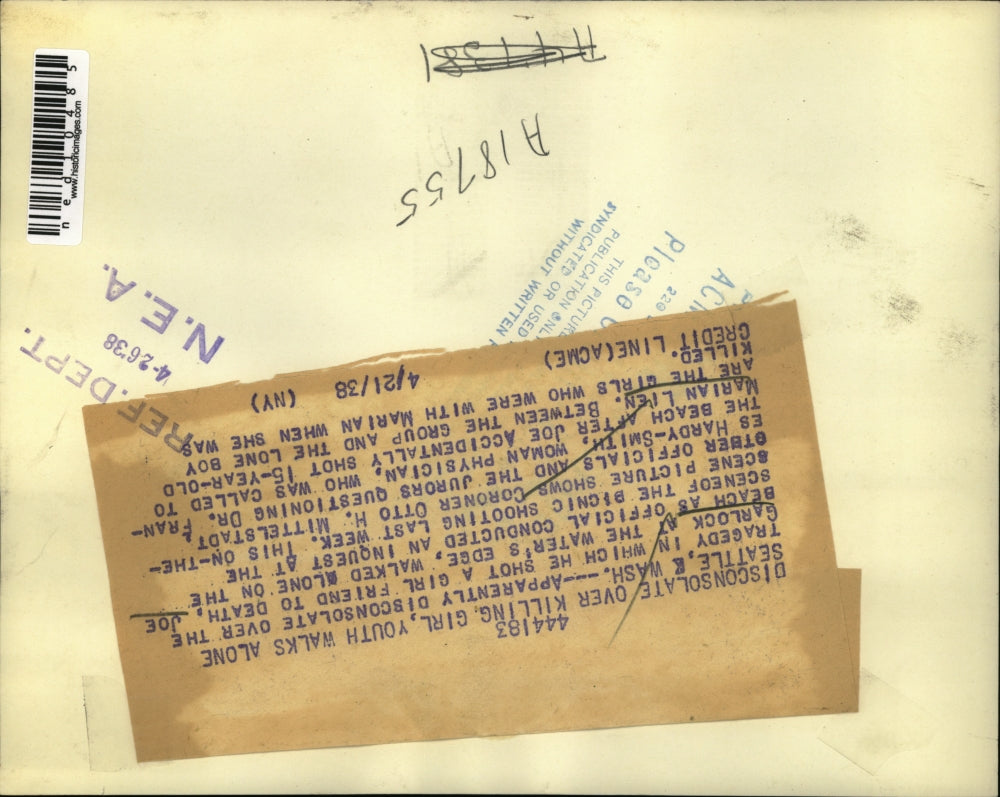 ned10485
www.historicimages.com
A18755
N.E.A.
4-26-38
REF. DEPT.
Please
220
THIS PICTURE
PUBLICATION ONL
SYNDICATED OR USED
WITHOUT WRITTEN
444183
DISCONSOLATE OVER KILLING GIRL, YOUTH WALKS ALONE
SEATTLE, WASH.---APPARENTLY DISCONSOLATE OVER THE
TRAGEDY IN WHICH HE SHOT A GIRL FRIEND TO DEATH, JOE
GARLOCK THE WATER'S EDGE, WALKED ALONE ON THE
BEACH AS OFFICIAL CONDUCTED AN INQUEST AT THE
SCENEOF THE PICNIC SHOOTING LAST WEEK. THIS ON-THE-
SCENE PICTURE SHOWS CORONER OTTO H. MITTELSTADT,
OTHER OFFICIALS AND THE JURORS QUESTIONING DR. FRAN-
ES HARDY-SMITH, WOMAN PHYSICIAN, WHO WAS CALLED TO
THE BEACH AFTER JOE ACCIDENTALLY SHOT 15-YEAR-OLD
MARIAN LIEN. BETWEEN THE GROUP AND THE LONE BOY
ARE THE GIRLS WHO WERE WITH MARIAN WHEN SHE WAS
KILLED.
CREDIT LINE(ACME) 4/21/38 (NY)